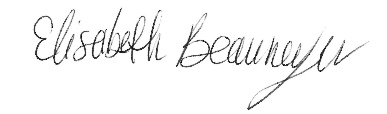 Elisabeth Beaumeyer